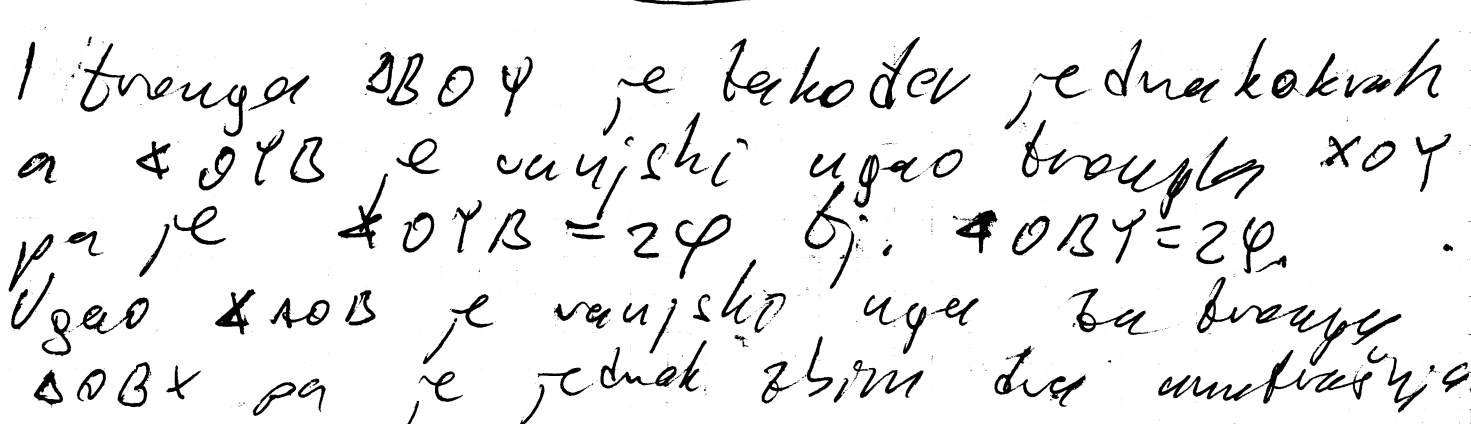 I trougao ΔBOY je također jednakokrak
a ∢OYB je vanjski ugao trougla XOY
pa je ∢OYB = 2φ, tj. ∢OBY = 2φ.
Ugao ∢AOB je vanjski ugao za trougao
ΔOBX pa je jednak zbiru dva unutrašnja